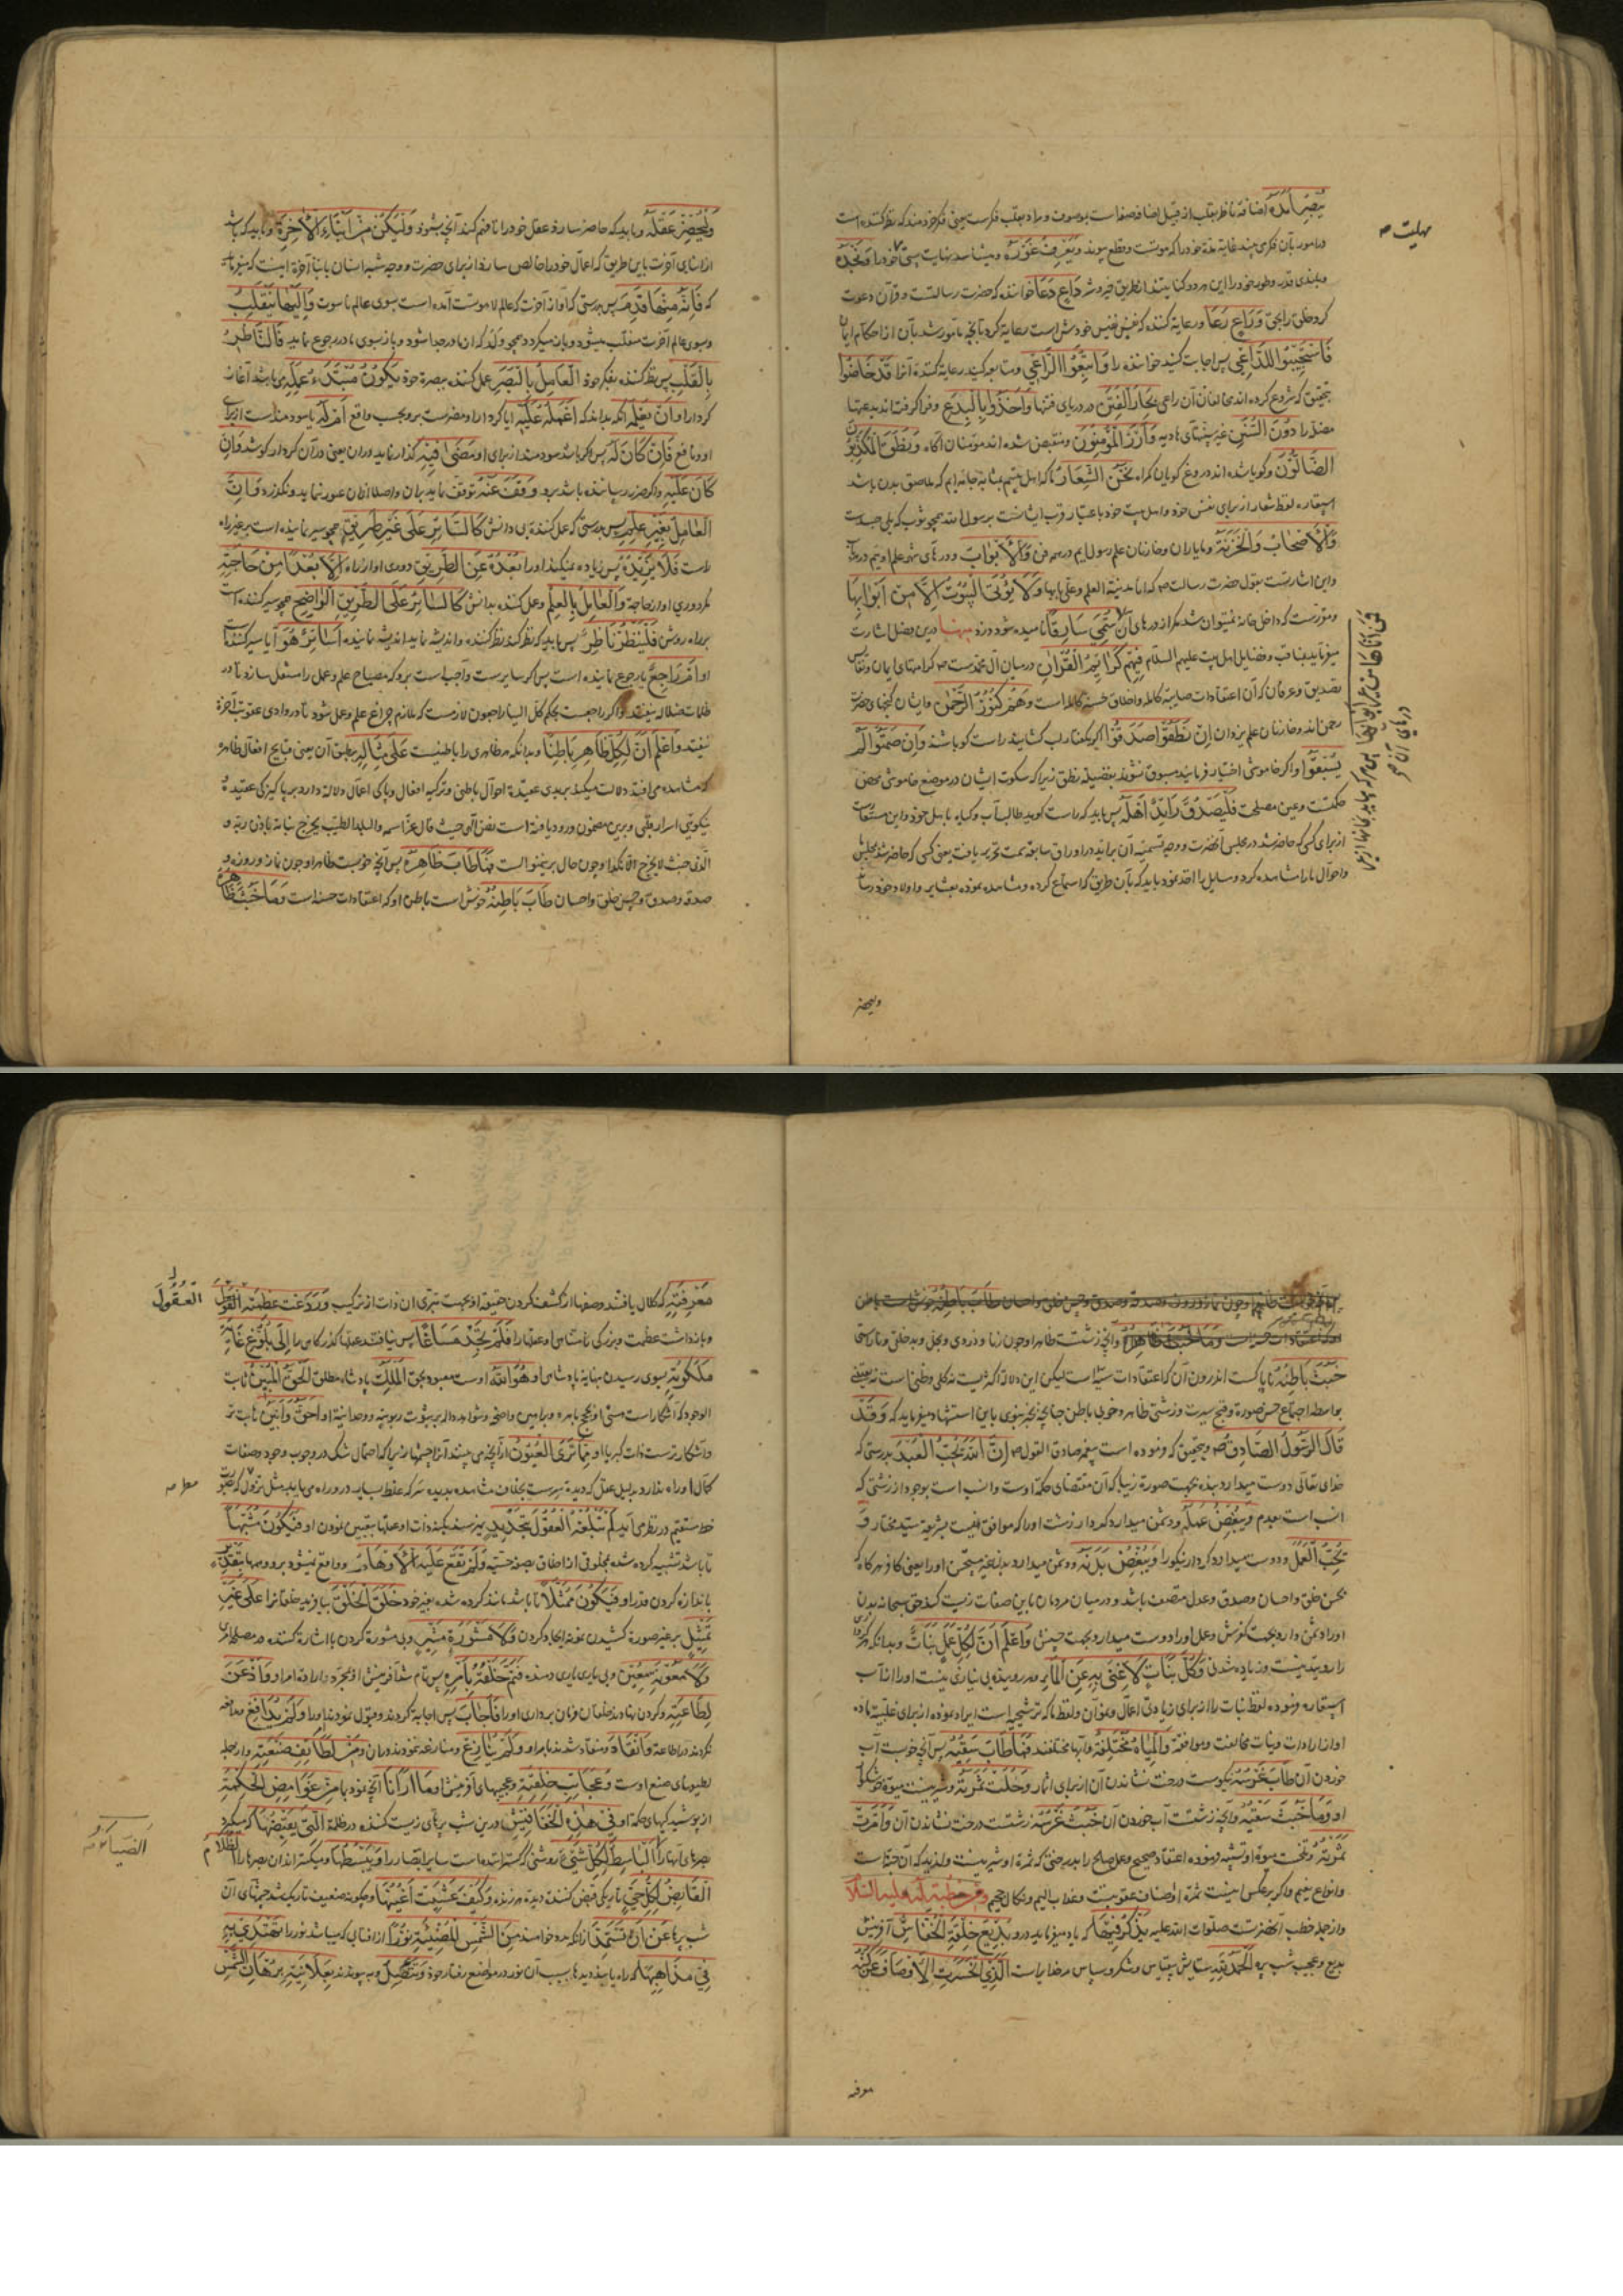 يُبْصِرُ أَمَدَهُ اضافهٔ ناظر بقلب از قبیل اضافهٔ صفا است بموصوف و مراد بقلب فکرست یعنی فکر خردمند که نظر کننده است
در امور بآن فکر می بیند غایة مدة خود را که موتست و قطع پیوند وَيَعْرِفُ غَوْرَهُ و میشناسد نهایت پستی خود را وَنَجْدَهُ
و بلندی قدر و طور خود را این هر دو کنایتند از طریق خیر و شر دَاعٍ دَعَا خواننده که حضرت رسالتست و قرآن دعوت
کرد خلق را بحق وَرَاعٍ رَعَا و رعایة کننده که نفس نفیس خودش است رعایة کرد بآنچه مأمور شد بآن از احکام ایمان
فَاسْتَجِيبُوا لِلدَّاعِي پس اجابت کنید خواننده را وَاتَّبِعُوا الرَّاعِي و متابعه کنید رعایة کننده آنرا قَدْ خَاضُوا
بتحقیق که شروع کرده اند مخالفان آن راعی بِحَارَ الْفِتَنِ در دریای فتنها وَأَخَذُوا بِالْبِدَعِ و فرا گرفته اند بدعتها
مضله را دُونَ السُّنَنِ غیر سنتهای هادیه وَأَرَزَ الْمُؤْمِنُونَ و منقبض شده اند مؤمنان آگاه وَنَطَقَ الْمُكَذِّبُونَ
الضَّالُّونَ و گویا شده اند دروغ گویان گمراه نَحْنُ الشِّعَارُ ما که اهل بیتیم بمثابهٔ جامه ایم که ملاصق بدن باشد
استعاره لفظ شعار از برای نفس خود و اهل بیت خود باعتبار قرب ایشانست برسول الله همچو ثوب که یلی جسدست
وَالْأَصْحَابُ وَالْخَزَنَةُ و ما یاران و خازنان علم رسول ایم در هر فن وَالْأَبْوَابُ و درهای شهر علم اوییم در هر باب
و این اشارتست بقول حضرت رسالت ص که انا مدینة العلم و علی بابها وَلَا تُؤْتَى الْبُيُوتُ إِلَّا مِنْ أَبْوَابِهَا
و مقررست که داخل خانه نمیتوان شد مگر از درهای آن سُمِّيَ سَارِقًا نامیده شود دزد منها درین فصل اشارت
میفرماید بمناقب و فضایل اهل بیت علیهم السلام فِيهِمْ كَرَائِمُ الْقُرْآنِ در میان آل محمدست ص کرامتهای ایمان و نفایس
تصدیق و عرفان که آن اعتقادات صایبهٔ کامله و اخلاق حسنهٔ کامله است وَهُمْ كُنُوزُ الرَّحْمٰنِ و ایشان گنجهای حضرت
رحمن اند و خازنان علم یزدان إِنْ نَطَقُوا صَدَقُوا اگر بگفتار لب گشایند راست گو باشند وَإِنْ صَمَتُوا لَمْ
يُسْبَقُوا و اگر خاموشی اختیار فرمایند مسبوق نشوند بفضیلة نطق زیرا که سکوت ایشان در موضع خاموشی محض
حکمتست و عین مصلحت فَلْيَصْدُقْ رَائِدٌ أَهْلَهُ پس باید که راست گوید طالب آب و گیاه باهل خود و این مستعارست
از برای کسی که حاضر شد در مجلس آنحضرت و وجه تسمیهٔ آن براید در اوراق سابقه سمت تحریر یافت یعنی کسی که حاضر شد بمجلس
و احوال ما را مشاهده کرد و مسایل را اخذ نمود باید که بآن طریق که استماع کرده و مشاهده نموده بعشایر و اولاد خود رساند
مهلت ص
فمن أتاها من غير أبوابها پس هر که بیاید بخانها از غیر
درهای آن ص
ولیحضر
وَلْيُحْضِرْ عَقْلَهُ و باید که حاضر سازد عقل خود را تا فهم کند آنچه بشنود وَلْيَكُنْ مِنْ أَبْنَاءِ الْآخِرَةِ و باید که باشد
از ابنای آخرت باین طریق که اعمال خود را خالص سازد از برای حضرت و وجه شبه انسان بابناء آخرة اینست که میفرماید
که فَإِنَّهُ مِنْهَا قَدِمَ پس بدرستی که او از آخرت که عالم لاهوتست آمده است بسوی عالم ناسوت وَإِلَيْهَا يَنْقَلِبُ
و بسوی عالم آخرت منقلب میشود و باز میگردد همچو ولد که از مادر جدا شود و باز بسوی مادر رجوع نماید فَالنَّاظِرُ
بِالْقَلْبِ پس نظر کننده بفکر خود الْعَامِلُ بِالْبَصَرِ عمل کننده ببصیرة خود يَكُونُ مُبْتَدَأُ عَمَلِهِ می باشد آغاز
کردار او أَنْ يَعْلَمَ آنکه بداند که أَعَمَلُهُ عَلَيْهِ آیا کردار او مضرست برو بحسب واقع أَمْ لَهُ یا سودمند است از برای
او و نافع فَإِنْ كَانَ لَهُ پس اگر باشد سودمند از برای او مَضَى فِيهِ گذار نماید در آن یعنی در آن کردار کوشد وَإِنْ
كَانَ عَلَيْهِ و اگر ضرر رساننده باشد برو وَقَفَ عَنْهُ توقف نماید بر آن و اصلا از آن عبور ننماید و نگذرد فَإِنَّ
الْعَامِلَ بِغَيْرِ عِلْمٍ پس بدرستی که عمل کننده بی دانش كَالسَّائِرِ عَلَى غَيْرِ طَرِيقٍ همچو سیر نماینده است بر غیر راه
راست فَلَا يَزِيدُهُ پس زیاده نمیکند او را بُعْدُهُ عَنِ الطَّرِيقِ دوری او از راه إِلَّا بُعْدًا مِنْ حَاجَتِهِ
مگر دوری او از حاجة وَالْعَامِلُ بِالْعِلْمِ و عمل کننده بدانش كَالسَّائِرِ عَلَى الطَّرِيقِ الْوَاضِحِ همچو سیر کننده است
بر راه روشن فَلْيَنْظُرْ نَاظِرٌ پس باید که نظر کند نظر کننده و اندیشه نماید اندیشه نماینده أَسَائِرٌ هُوَ آیا سیر کننده است
او أَمْ رَاجِعٌ یا رجوع نماینده است پس اگر سایرست واجب است برو که مصباح علم و عمل را مشتعل سازد تا در
ظلمات ضلاله نیفتد و اگر راجعست بحکم کل الینا راجعون لازمست که ملازم چراغ علم و عمل شود تا در وادی عقوبت آخرة
نیفتد وَاعْلَمْ أَنَّ لِكُلِّ ظَاهِرٍ بَاطِنًا و بدانکه هر ظاهری را باطنیست عَلَى مِثَالِهِ بر طبق آن یعنی قبایح افعال ظاهره
که مشاهده می افتد دلالت میکند بر بدی عقیدة احوال باطنی و تزکیه افعال و پاکی اعمال دلاله دارد بر پاکیزگی عقیدة
نیکویی اسرار قلبی و برین مضمون ورود یافته است نص الهی حیث قال عز اسمه والبلد الطیب یخرج نباته باذن ربه و
الذی خبث لا یخرج الا نکدا و چون حال برینمنوالست فَمَا طَابَ ظَاهِرُهُ پس آنچه خوبست ظاهر او چون نماز و روزه و
صدقه و صدق و حسن خلق و احسان طَابَ بَاطِنُهُ خوش است باطن او که اعتقادات حسنه است وَمَا خَبُثَ ظَاهِرُهُ
و آنچه زشتست ظاهر او چون زنا و دزدی و بخل و بد خلقی و ناراستی
خَبُثَ بَاطِنُهُ ناپاکست اندرون آن که اعتقادات سیئه است لیکن این دلاله اکثریست نه کلی و ظنی است نه یقینی
بواسطه اجتماع حسن صورة و قبح سیرت و زشتی ظاهر و خوبی باطن چنانچه بخبر نبوی باین استشهاد میفرماید که وَقَدْ
قَالَ الرَّسُولُ الصَّادِقُ ص و بتحقیق که فرموده است پیغمبر صادق القول ص إِنَّ اللّٰهَ يُحِبُّ الْعَبْدَ بدرستی که
خدای تعالی دوست میدارد بنده بجهت صورة زیبا که آن مقتضای حکمة اوست و انسب است بوجود از زشتی که
انسب است بعدم وَيُبْغِضُ عَمَلَهُ و دشمن میدارد کردار زشت او را که موافق نیست بشریعة سید مختار وَ
يُحِبُّ الْعَمَلَ و دوست میدارد کردار نیکو را وَيُبْغِضُ بَدَنَهُ و دشمن میدارد بدن غیر مستحسن او را یعنی کافر هرگاه که
بحسن خلق و احسان و صدق و عدل متصف باشد و در میان مردمان باین صفات زیست کند حق سبحانه بدن
او را دشمن دارد بجهت کفرش و عمل او را دوست میدارد بجهت حسنش وَاعْلَمْ أَنَّ لِكُلِّ عَمَلٍ نَبَاتًا و بدانکه هر کرداری
را روییدنیست و زیاده شدنی وَكُلُّ نَبَاتٍ لَا غِنَى بِهِ عَنِ الْمَاءِ و هر روینده بی نیازی نیست او را از آب
استعاره فرموده لفظ نبات را از برای زیادتی اعمال و نمو آن و لفظ ماء که ترشیح است ایراد نموده از برای غلبهٔ ماده
او از ارادات و نیات مخالفت و موافقة وَالْمِيَاهُ مُخْتَلِفَةٌ و آبها مختلفند فَمَا طَابَ سَقْيُهُ پس آنچه خوبست آب
خوردن آن طَابَ غَرْسُهُ نیکوست درخت نشاندن آن از برای اثمار وَحَلَتْ ثَمَرَتُهُ و شیرینست میوهٔ خوشگوار
او وَمَا خَبُثَ سَقْيُهُ و آنچه زشتست آب خوردن آن خَبُثَ غَرْسُهُ زشتست درخت نشاندن آن وَأَمَرَّتْ
ثَمَرَتُهُ و تلخست میوهٔ او تشبیه فرموده اعتقاد صحیح و عمل صالح را بدرختی که ثمرهٔ او شیرینست و لذیذ که آن جناتست
و انواع نعیم و اگر برعکس اینست ثمرهٔ اوصناف عقوبتست و عذاب الیم و نکال جحیم ومن خطبة له علیه السلام
و از جمله خطب آنحضرتست صلوات الله علیه يَذْكُرُ فِيهَا که یاد میفرماید درو بَدِيعَ خِلْقَةِ الْخُفَّاشِ آفرینش
بدیع و عجیب شب پره الْحَمْدُ لِلّٰهِ ستایش بیقیاس و شکر و سپاس مر خدایراست الَّذِي انْحَسَرَتِ الْأَوْصَافُ عَنْ كُنْهِ
معرفته
مَعْرِفَتِهِ که کلال یافتند وصفها از کشف کردن حقیقة او بجهت تبری آن ذات از ترکیب وَرَدَعَتْ عَظَمَتُهُ الْعُقُولَ
و بازداشت عظمت و بزرگی ناشناسی او عقلها را فَلَمْ تَجِدْ مَسَاغًا پس نیافتند عقلها گذرگاهی را إِلَى بُلُوغِ غَايَةِ
مَلَكُوتِهِ بسوی رسیدن بنهایة پادشاهی او هُوَ اللّٰهُ اوست معبود بحق الْمَلِكُ پادشاه مطلق الْحَقُّ الْمُبِينُ ثابت
الوجود که آشکاراست هستی او بحجج باهره و براهین واضحه و شواهد داله بر ثبوت ربوبیته و وحدانیة او أَحَقُّ وَأَبْيَنُ ثابت تر
و آشکارترست ذات کبریا او مِمَّا تَرَى الْعُيُونُ از آنچه می بینند آنرا چشمها زیرا که احتمال شک در وجوب وجود و صفات
کمال او راه ندارد بدلیل عقل که دیدهٔ سرست بخلاف مشاهده بدیدهٔ سر که غلط بسیار درو راه می یابد مثل
خط مستقیم در نظر می آید لَمْ تَبْلُغْهُ الْعُقُولُ بِتَحْدِيدٍ نرسیدند بکنه ذات او عقلها بتعیین نمودن او فَيَكُونَ مُشَبَّهًا
تا باشد تشبیه کرده شده بمخلوقی از اتصاف بصفة حسیه وَلَمْ تَقَعْ عَلَيْهِ الْأَوْهَامُ و واقع نمیشود برو وهمها بِتَقْدِيرٍ
باندازه کردن قدر او فَيَكُونَ مُمَثَّلًا تا باشد مانند کرده شده بغیر خود خَلَقَ الْخَلْقَ بیافرید خلقانرا عَلَى غَيْرِ
تَمْثِيلٍ بر غیر صورة کشیدن نمونه ایجاد کردن وَلَا مَشُورَةِ مُشِيرٍ و بی مشورة کردن با اشارة کننده در مصلحة امری
وَلَا مَعُونَةِ مُعِينٍ و بی یاری یاری دهنده فَتَمَّ خَلْقُهُ بِأَمْرِهِ پس تمام شد آفرینش او بمجرد اراده امر او وَأَذْعَنَ
لِطَاعَتِهِ و گردن نهادند خلقان فرمان برداری او را فَأَجَابَ پس اجابة کردند و قبول نمودند اورا وَلَمْ يُدَافِعْ و مدافعه
نکردند در اطاعة وَانْقَادَ و منقاد شدند بامر او وَلَمْ يُنَازِعْ و منازعه ننمودند در آن وَمِنْ لَطَائِفِ صَنْعَتِهِ و از جمله
لطیفهای صنع اوست وَعَجَائِبِ خِلْقَتِهِ و عجیبهای آفرینش او مَا أَرَانَا آنچه نمود بما مِنْ غَوَامِضِ الْحِكْمَةِ
از پوشیدگیهای حکمة او فِي هٰذِهِ الْخَفَافِيشِ درین شب پرهای زیست کننده در ظلمة الَّتِي يَقْبِضُهَا که میگیرد
بصرهای آنها را الْبَاسِطُ لِكُلِّ شَيْءٍ روشنی که گستراننده است سایر ابصار را وَيَبْسُطُهَا و میگستراند آن بصرها را الظَّلَامُ
الْقَابِضُ لِكُلِّ حَيٍّ تاریکی قبض کننده دیدهٔ هر زنده وَكَيْفَ عَشِيَتْ أَعْيُنُهَا و چگونه ضعیف و تاریک شد چشمهای آن
شب پرها عَنْ أَنْ تَسْتَمِدَّ از آنکه مدد خواهند مِنَ الشَّمْسِ الْمُضِيئَةِ نُورًا از آفتابی که میباشد نور را تَهْتَدِي بِهِ
فِي مَذَاهِبِهَا که راه یابند دیدها بسبب آن نور در مواضع رفتار خود وَتَتَّصِلُ و بپیوندند بِعَلَانِيَةِ بُرْهَانِ الشَّمْسِ
الْعُقُولَ
الضياء ص